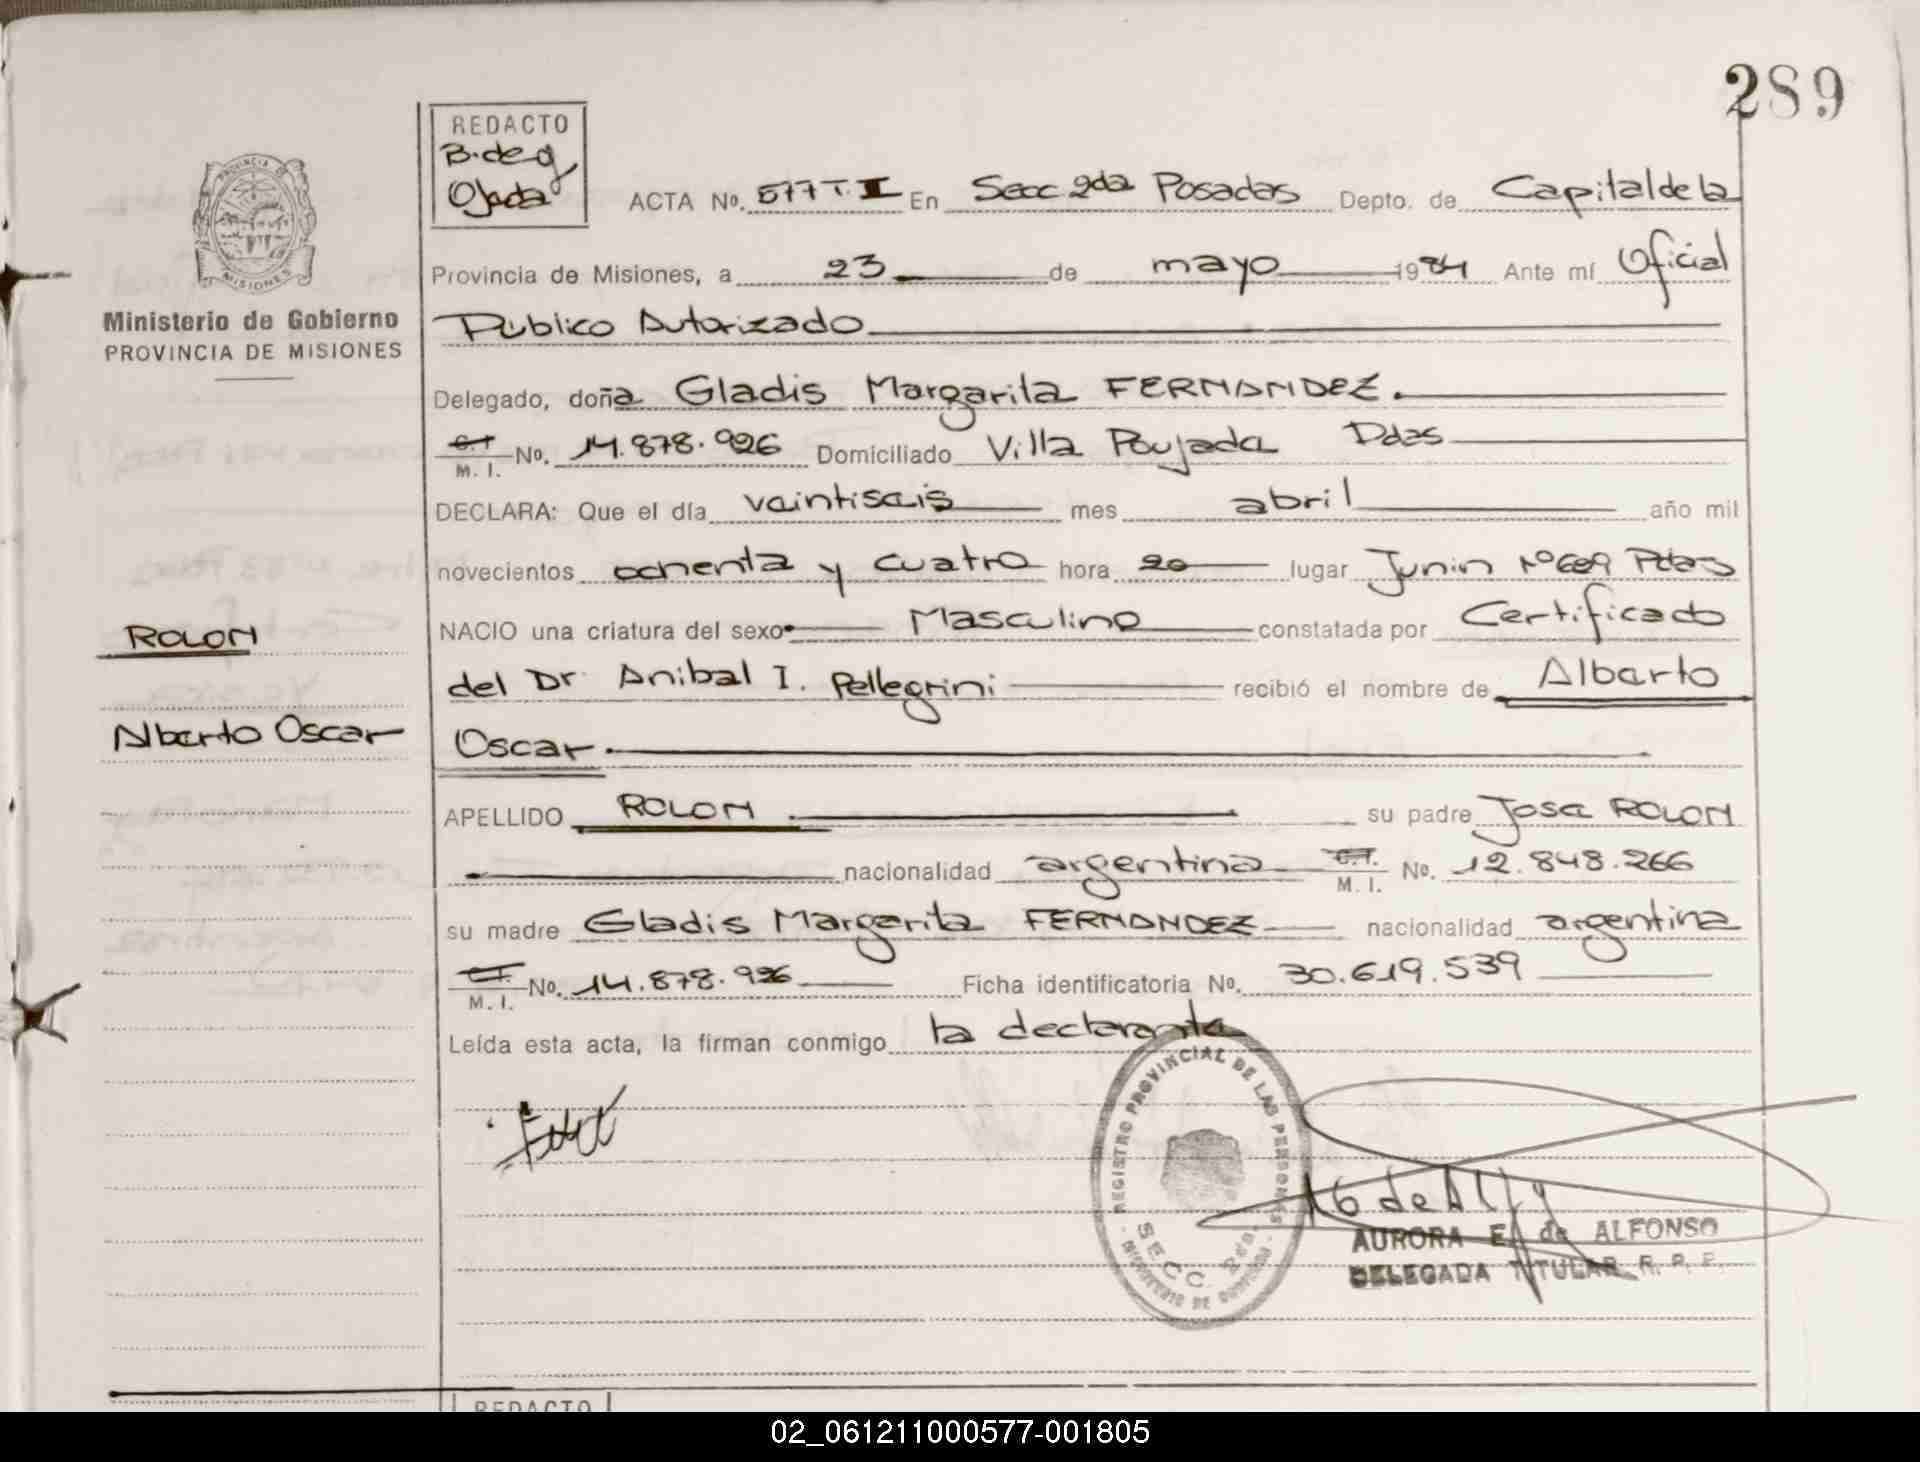 289
REDACTO
B. de
Ojeda
ACTA No. 577 T. II En Secc 2da Posadas Depto. de Capital de la
PROVINCIA
MISIONES
Provincia de Misiones, a 23 de mayo 1984 Ante mí Oficial
Ministerio de Gobierno
PROVINCIA DE MISIONES
Público Autorizado
Delegado, doña Gladis Margarita FERNANDEZ.
C.I. M. I. No. 14.878.926 Domiciliado Villa Poujada Pdas
DECLARA: Que el día veintiseis mes abril año mil
novecientos ochenta y cuatro hora 20 lugar Junin Nº 689 Pdas
ROLON
NACIO una criatura del sexo Masculino constatada por Certificado
del Dr. Anibal I. Pellegrini recibió el nombre de Alberto
Alberto Oscar
Oscar.
APELLIDO ROLON su padre Jose ROLON
nacionalidad argentina C.I. M. I. No. 12.848.266
su madre Gladis Margarita FERNANDEZ nacionalidad argentina
C.I. M. I. No. 14.878.926 Ficha identificatoria No. 30.619.539
Leída esta acta, la firman conmigo la declarante
REGISTRO PROVINCIAL DE LAS PERSONAS
SECC. 2da.
MINISTERIO DE GOBIERNO
AURORA E. de ALFONSO
DELEGADA TITULAR R. P. P.
REDACTO
02_061211000577-001805